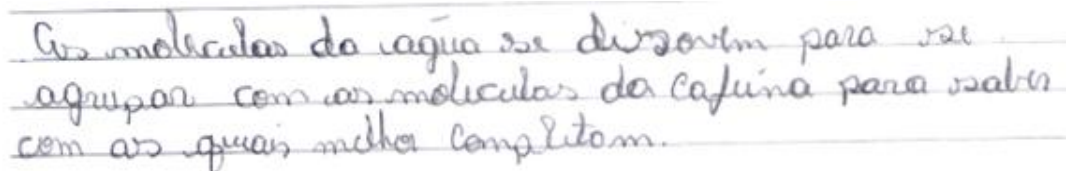 As moleculas da agúa se disovem para se
agrupar com as moleculas da cafeina para saber
com as quais melhor completam.